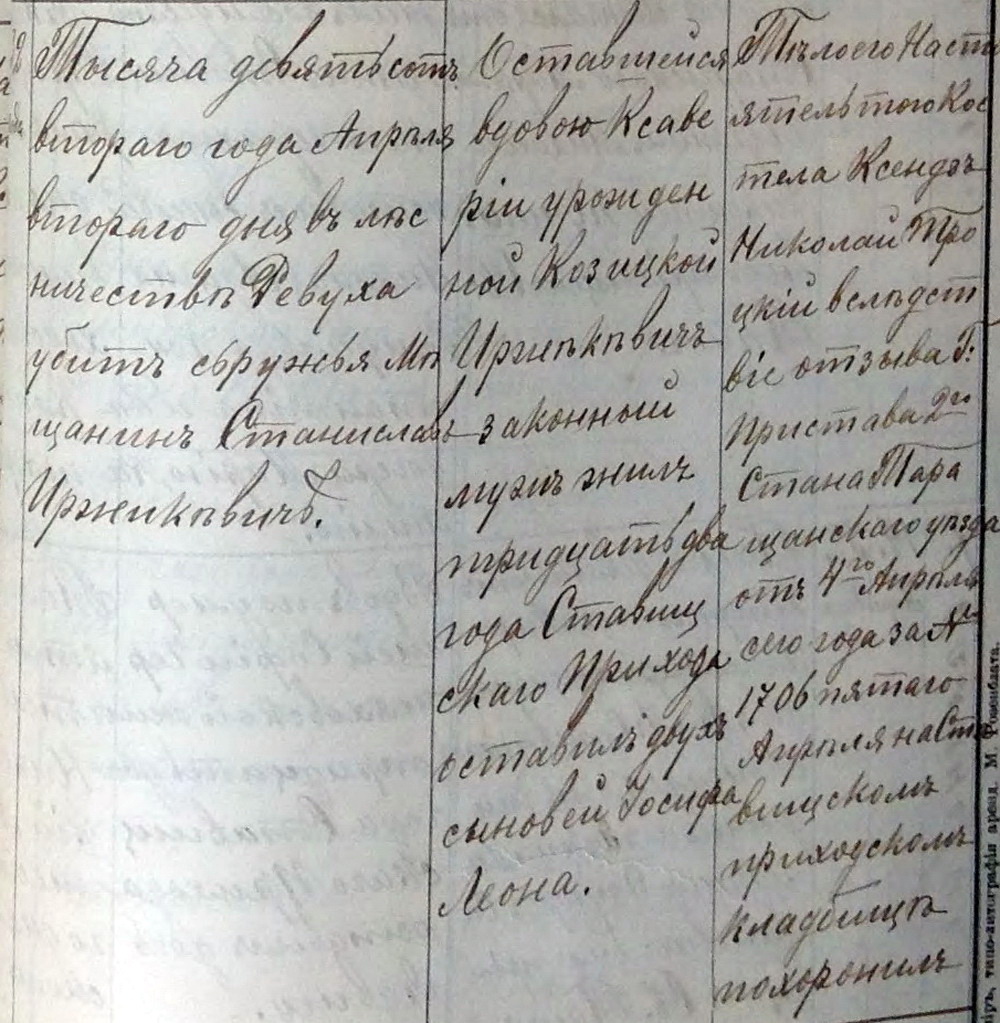 Тысяча девятьсотъ
втораго года Апрѣля
втораго дня въ лѣс
ничествѣ Девуха
убитъ съ ружья Мѣ
щанинъ Станиславъ
Иржикѣвичъ.
Оставшейся
вдовою Ксаве
ріи урожден
ной Козицкой
Иржикѣвичъ
законный
мужъ жилъ
тридцать два
года Ставищ
скаго Прихода
оставилъ двухъ
сыновей Іосифа
Леона.
Тѣло его Наст
ятель того Кос
тела Ксендзъ
Николай Тро
цкій вслѣдст
віе отзыва Г:
Пристава 2го
Стана Тара
щанскаго уѣзда
отъ 4го Апрѣля
сего года за №
1706 пятаго
Апрѣля на Ста
вищскомъ
приходскомъ
кладбищѣ
похоронилъ
типо-литографія аренд. М. Розенблата.